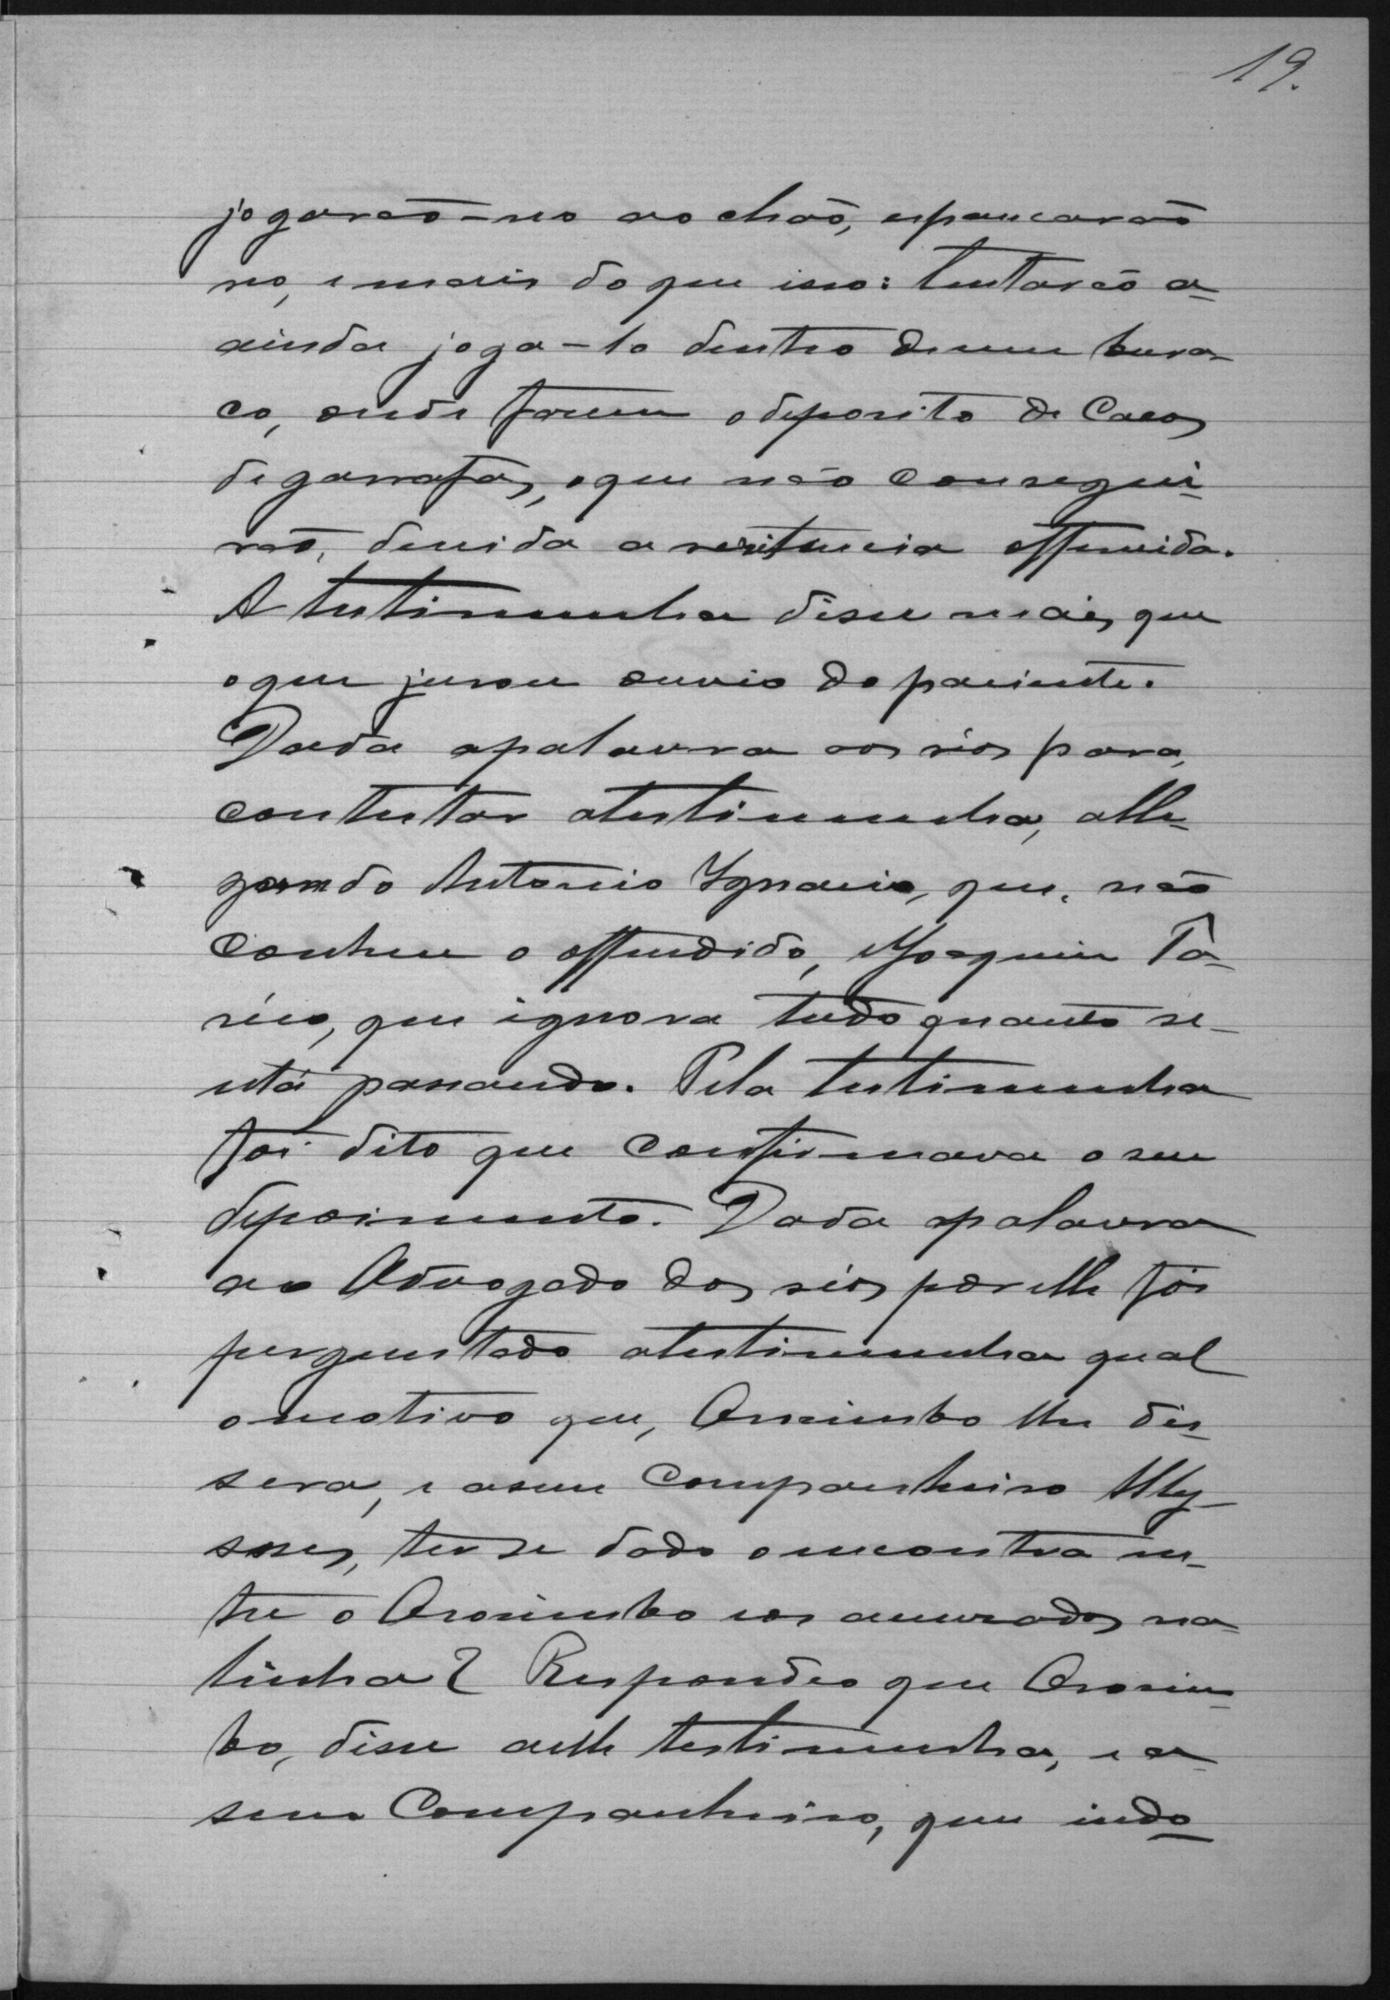 19.
jogarão-no ao chão, espancarão
no, e mais do que isso: tentarão a-
ainda joga-lo dentro de um bura-
co, onde fazem o deposito de Cacos
de garrafas, o que não consegui-
rão, devido a resistencia offerecida.
A testimunha disse mais, que
o que jurou ouvio do paciente.
Dada a palavra aos réos para,
contestar a testimunha, alle-
gando Antonio Ignacio, que, não
conhece o offendido, Joaquim To-
rico, que ignora tudo quanto se-
está passando. Pela testimunha
foi dito que confirmava o seu
depoimento. Dada a palavra
ao Advogado dos réos por elle foi
perguntado a testimunha qual
o motivo que, Orosimbo lhe dis-
sera, e a seu Companheiro Uly-
sses, ter se dado o encontro en-
tre o Orosimbo e os accusados na
linha? Respondeo que Orosim-
bo, disse a elle testimunha, e a
seu Companheiro, que indo